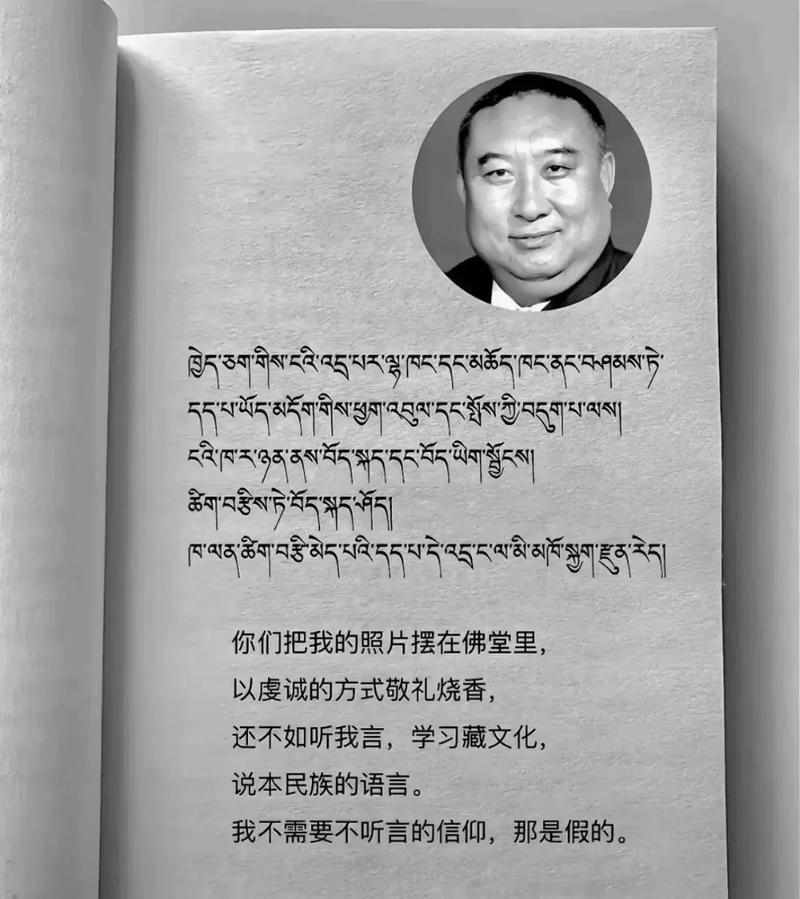 ཁྱེད་ཅག་གིས་ངའི་འདྲ་པར་ལྷ་ཁང་དང་མཆོད་ཁང་ནང་བཤམས་ཏེ་
དད་པ་ཡོད་མདོག་གིས་ཕྱག་འབུལ་དང་སྤོས་ཀྱི་བདུག་པ་ལས།
ངའི་ཁ་ར་ཉན་ནས་བོད་སྐད་དང་བོད་ཡིག་སྦྱོངས།
ཚིག་བརྩིས་ཏེ་བོད་སྐད་ཤོད།
ཁ་ལན་ཚིག་བརྩི་མེད་པའི་དད་པ་དེ་འདྲ་ང་ལ་མི་མཁོ་སྐྱག་རྫུན་རེད།
你们把我的照片摆在佛堂里，
以虔诚的方式敬礼烧香，
还不如听我言，学习藏文化，
说本民族的语言。
我不需要不听言的信仰，那是假的。